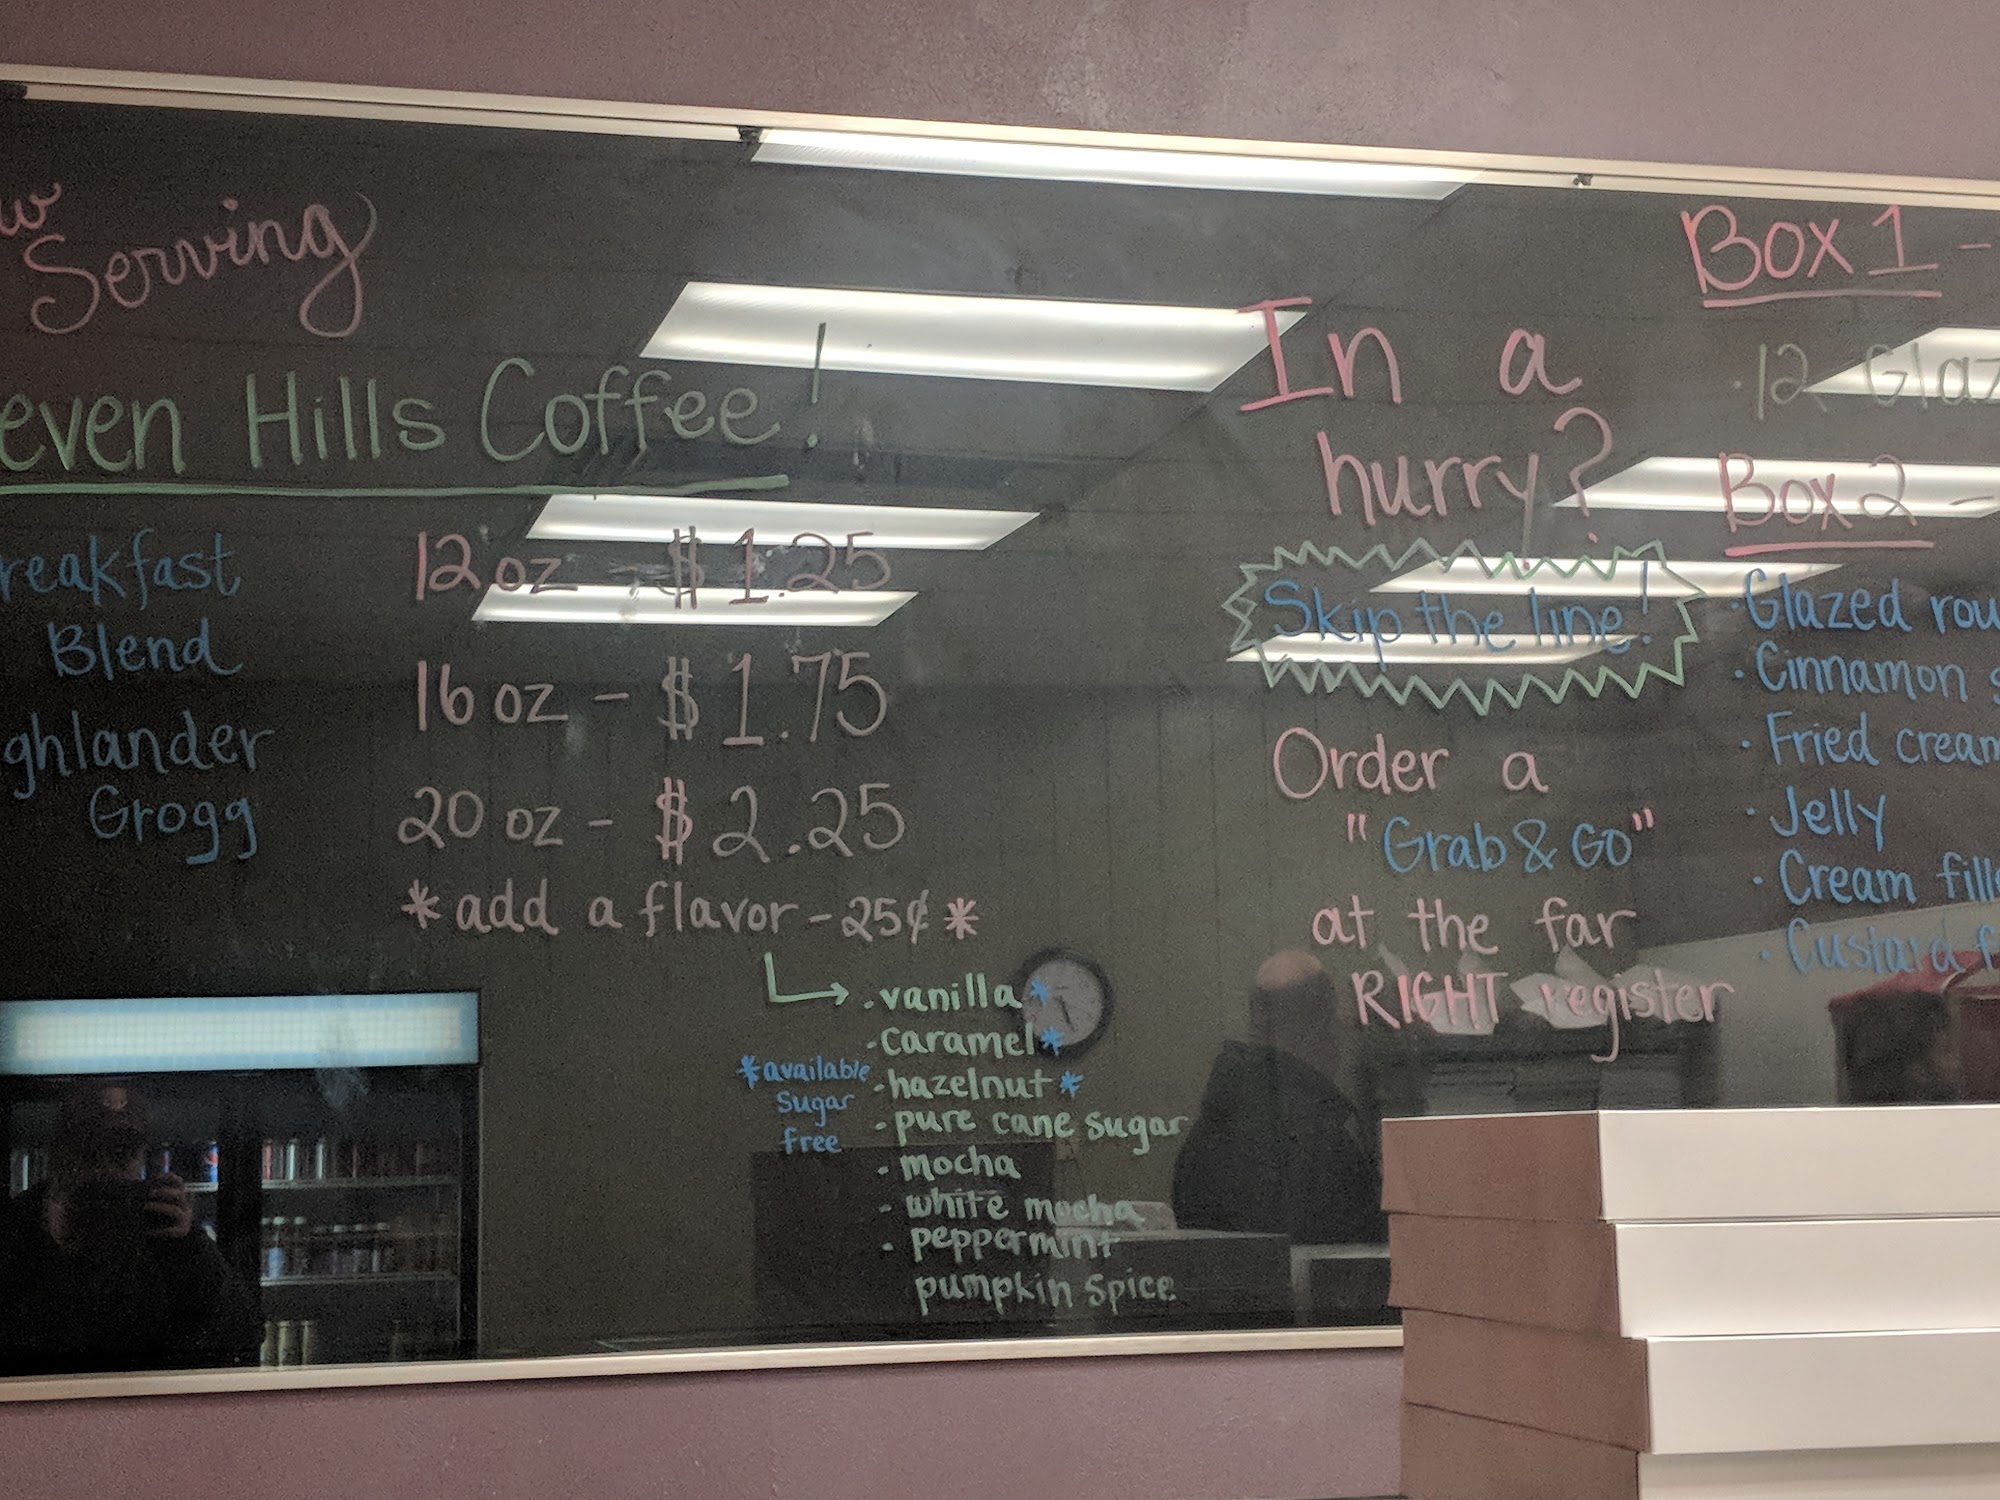 w
Serving
even Hills Coffee!
reakfast
Blend
ghlander
Grogg
12 oz - $1.25
16 oz - $1.75
20 oz - $2.25
*add a flavor - 25¢*
· vanilla*
· caramel*
· hazelnut*
· pure cane sugar
· mocha
· white mocha
· peppermint
pumpkin spice
*available
sugar
free
In a
hurry?
Skip the line!
Order a
"Grab & Go"
at the far
RIGHT register
Box 1 -
· 12 Glaz
Box 2 -
· Glazed rou
· Cinnamon s
· Fried cream
· Jelly
· Cream fill
· Custard f